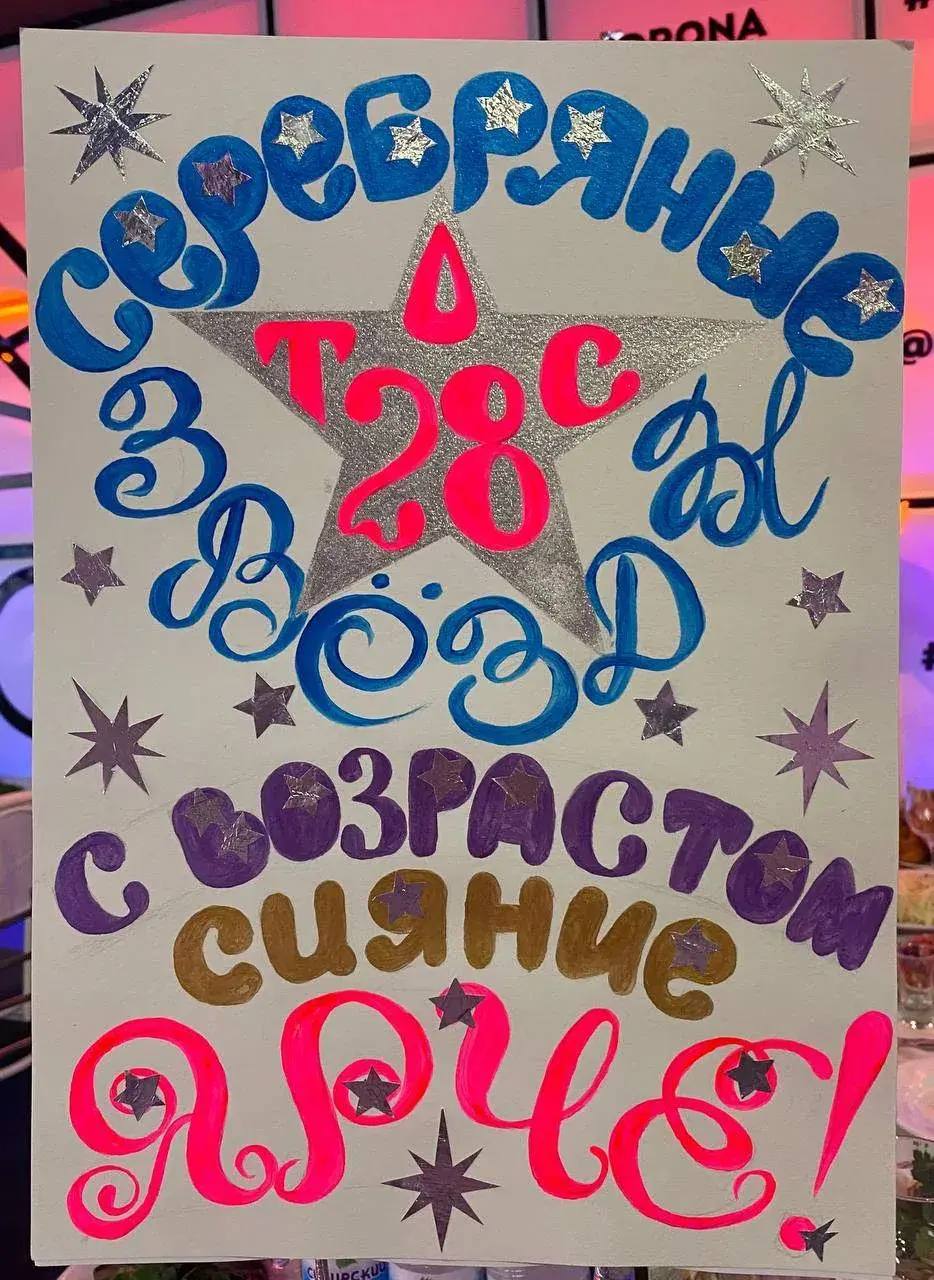 СЕРЕБРЯНЫЕ
ТОС
28
ЗВЁЗДЫ
С ВОЗРАСТОМ
СИЯНИЕ
ЯРЧЕ!